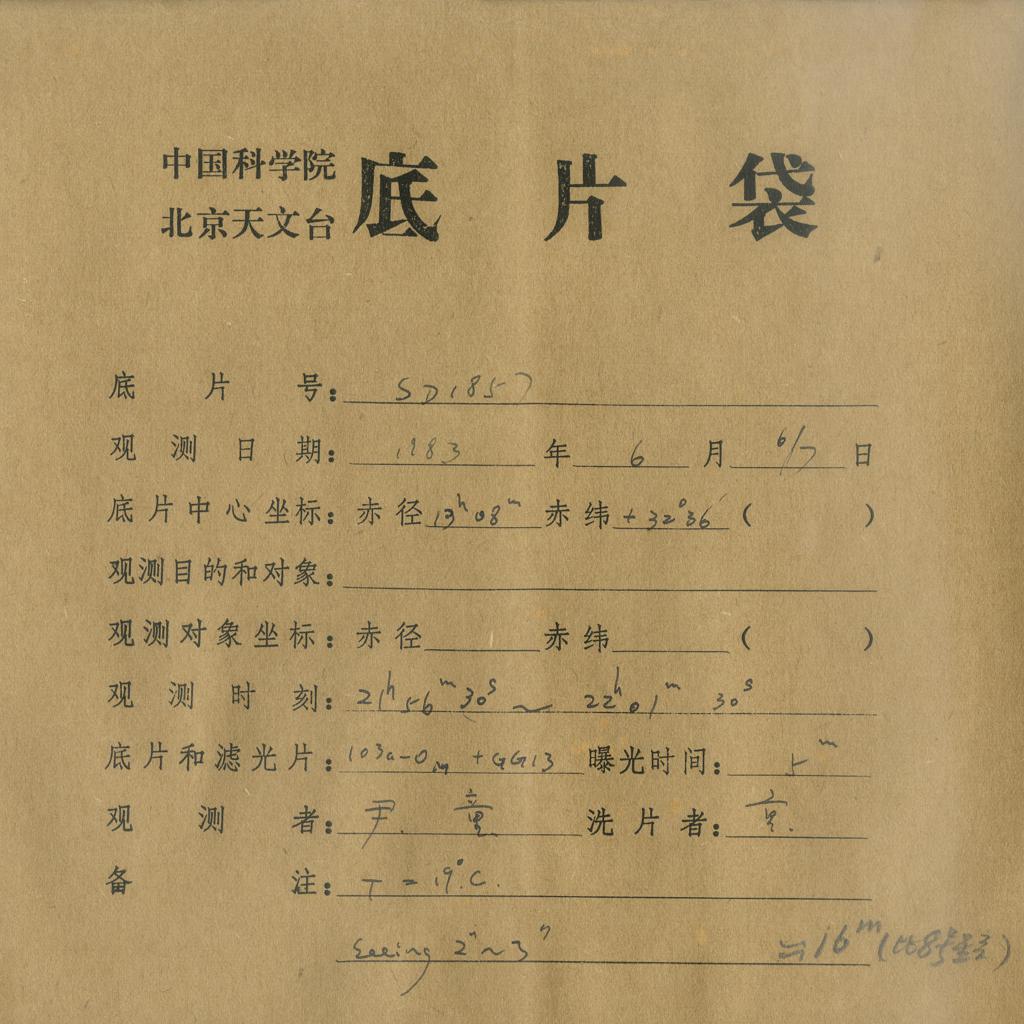 中国科学院
北京天文台
底片袋
底片号: SD1857
观测日期: 1983年 6月 6/7日
底片中心坐标: 赤径 13h 08m 赤纬 +32°36′ ( )
观测目的和对象:
观测对象坐标: 赤径 赤纬 ( )
观测时刻: 21h 56m 30s ~ 22h 01m 30s
底片和滤光片: 103a-O + GG13 曝光时间: 5m
观测者: 尹. 童 洗片者:
备注: T = 19°C.
Seeing 2″~3″ 16m